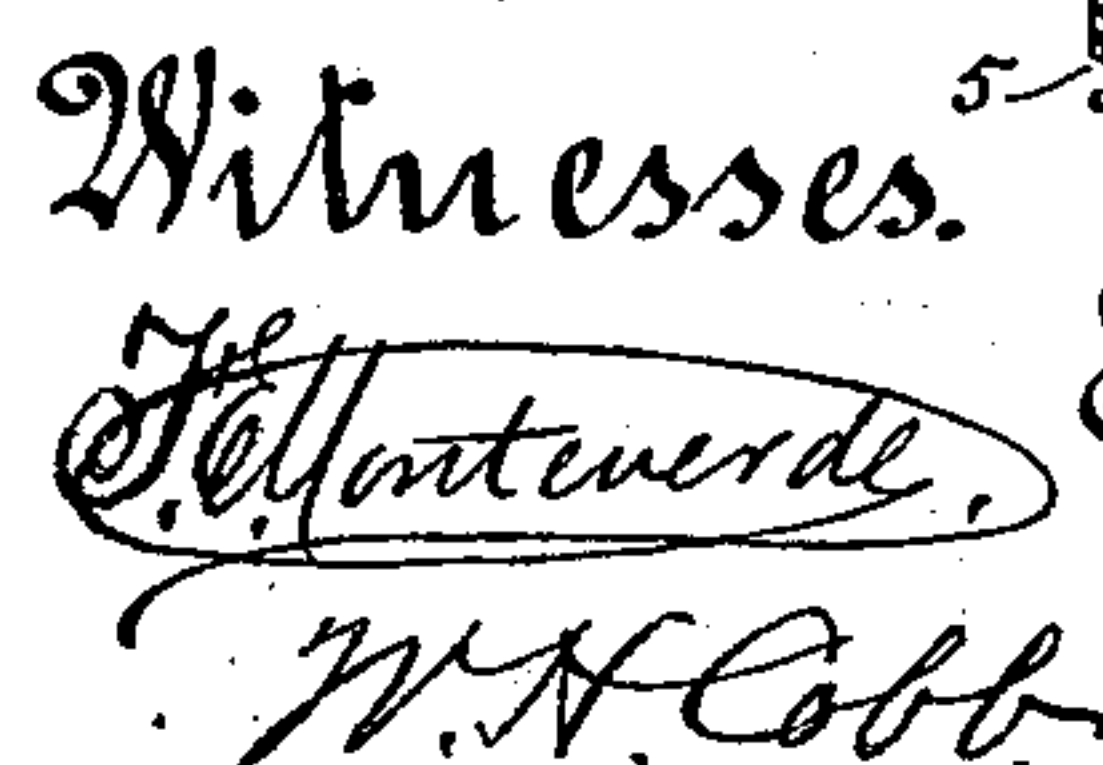 5
Witnesses.
F. E. Monteverde.
W. H. Cobb